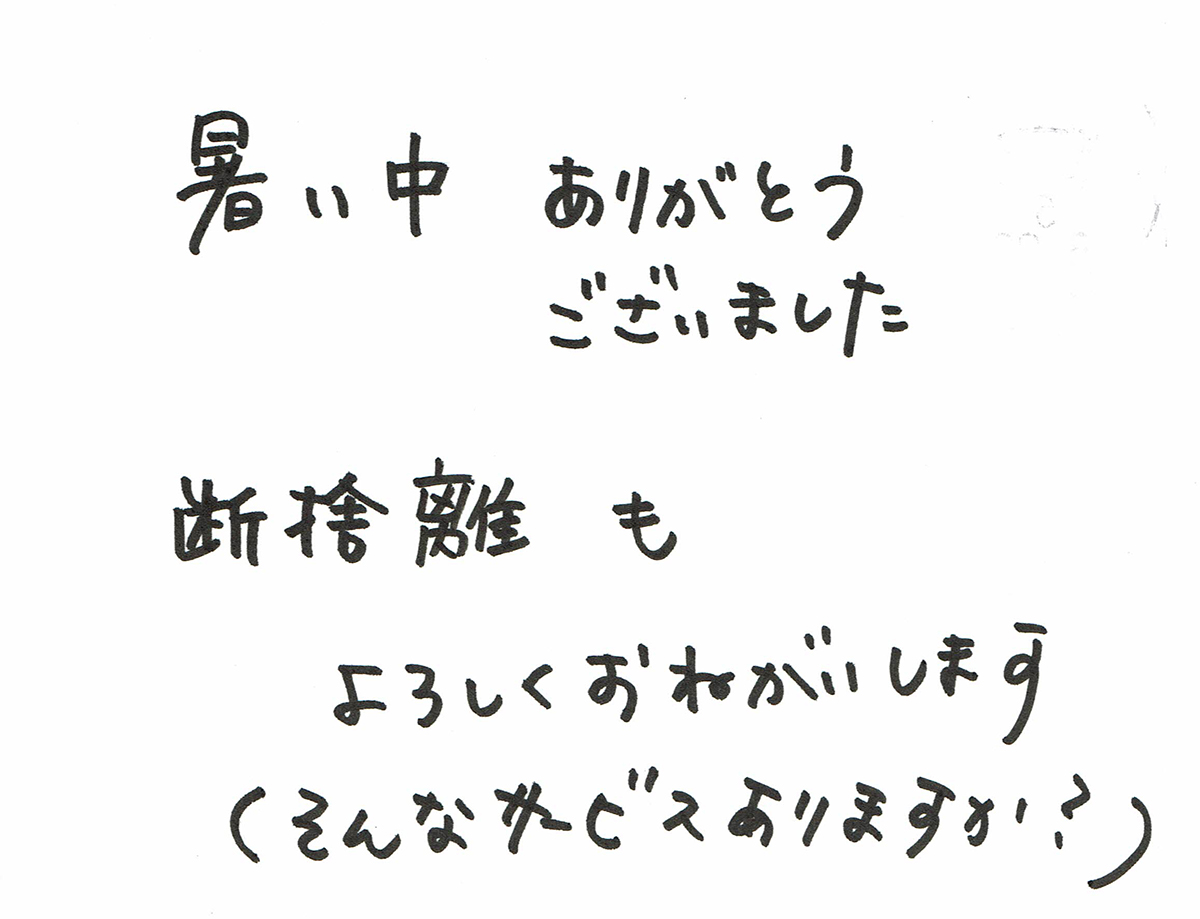 暑い中 ありがとう
ございました
断捨離も
よろしくおねがいします
(そんなサービスありますか?)